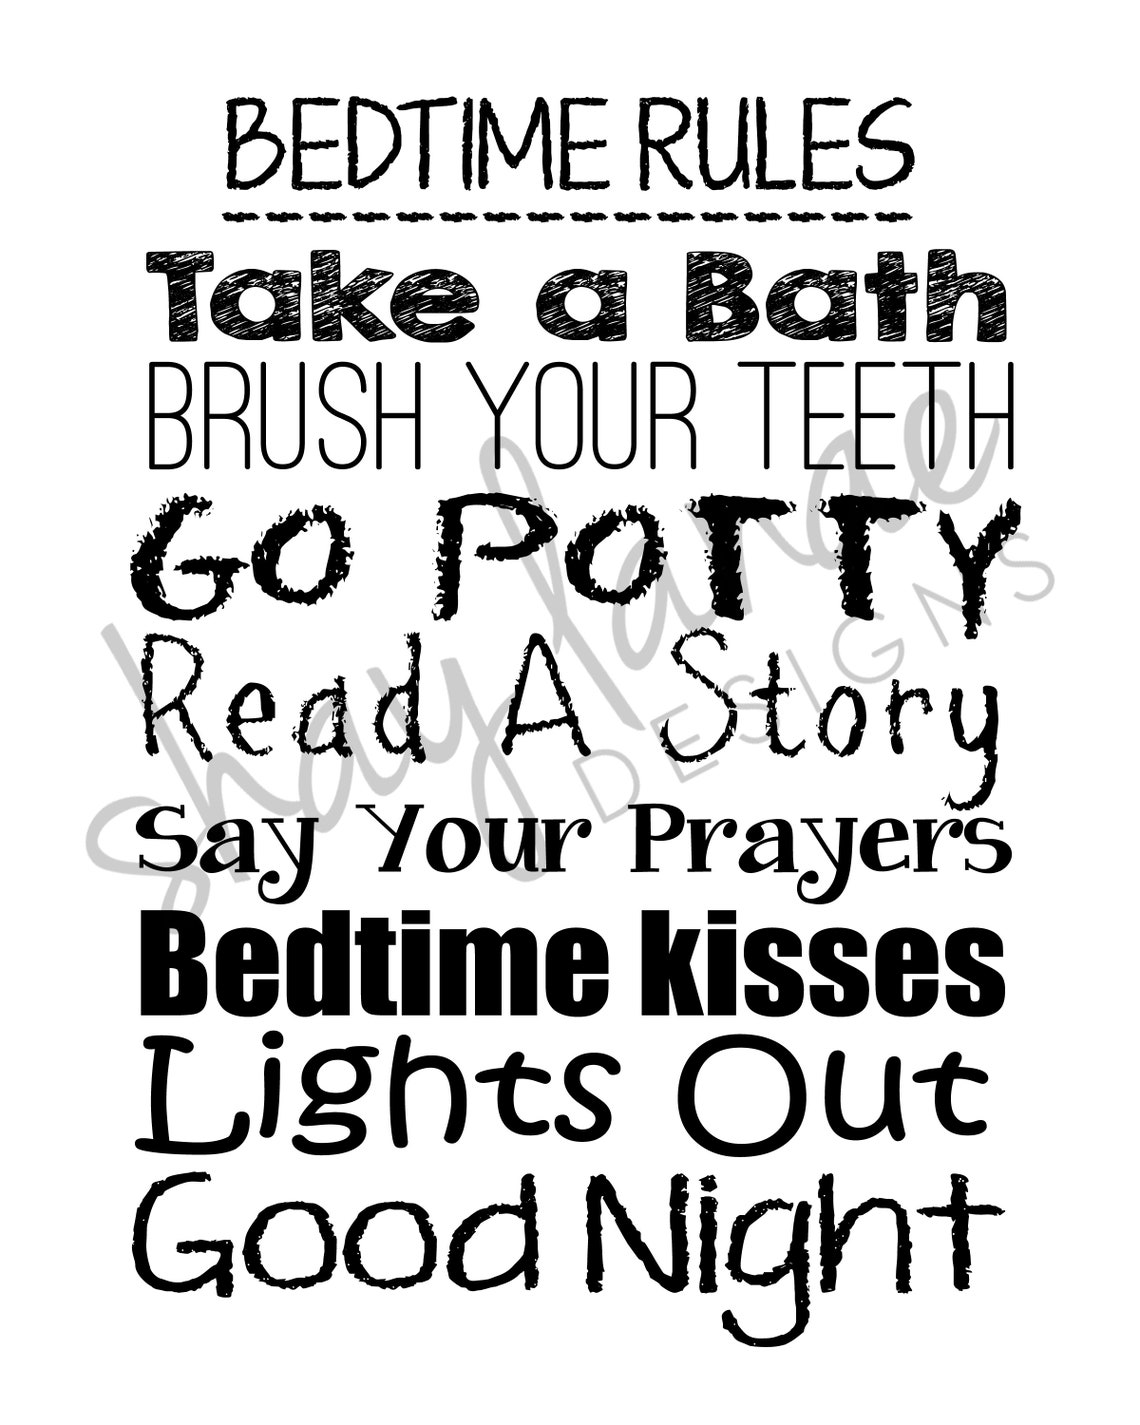 BEDTIME RULES
Take a Bath
BRUSH YOUR TEETH
GO POTTY
Read A Story
Say Your Prayers
Bedtime kisses
Lights Out
Good Night
shaylanae
DESIGNS